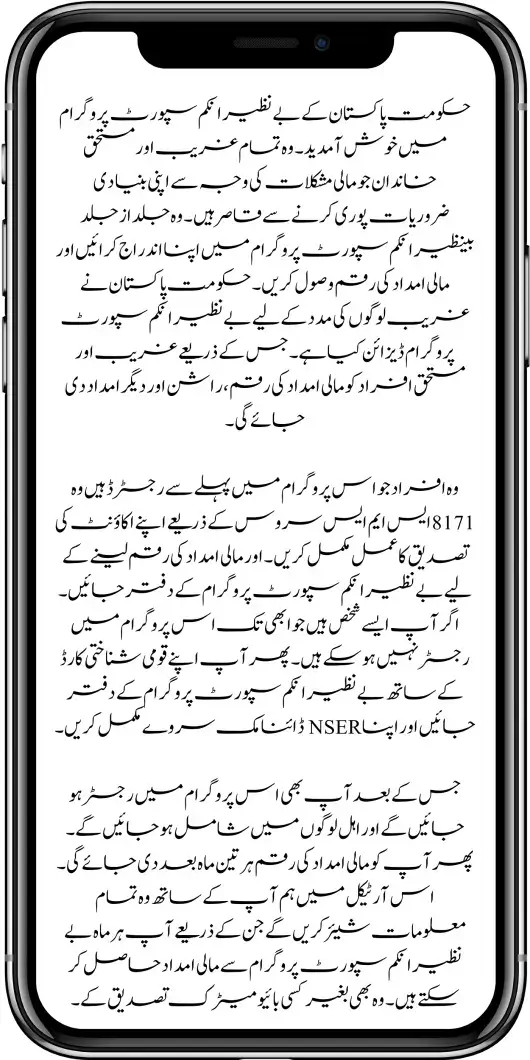 حکومت پاکستان کے بے نظیر انکم سپورٹ پروگرام
میں خوش آمدید۔ وہ تمام غریب اور مستحق
خاندان جو مالی مشکلات کی وجہ سے اپنی بنیادی
ضروریات پوری کرنے سے قاصر ہیں۔ وہ جلد از جلد
بینظیر انکم سپورٹ پروگرام میں اپنا اندراج کرائیں اور
مالی امداد کی رقم وصول کریں۔ حکومت پاکستان نے
غریب لوگوں کی مدد کے لیے بے نظیر انکم سپورٹ
پروگرام ڈیزائن کیا ہے۔ جس کے ذریعے غریب اور
مستحق افراد کو مالی امداد کی رقم، راشن اور دیگر امداد دی
جائے گی۔
وہ افراد جو اس پروگرام میں پہلے سے رجسٹرڈ ہیں وہ
8171 ایس ایم ایس سروس کے ذریعے اپنے اکاؤنٹ کی
تصدیق کا عمل مکمل کریں۔ اور مالی امداد کی رقم لینے کے
لیے بے نظیر انکم سپورٹ پروگرام کے دفتر جائیں۔
اگر آپ ایسے شخص ہیں جو ابھی تک اس پروگرام میں
رجسٹر نہیں ہو سکے ہیں۔ پھر آپ اپنے قومی شناختی کارڈ
کے ساتھ بے نظیر انکم سپورٹ پروگرام کے دفتر
جائیں اور اپنا NSER ڈائنامک سروے مکمل کریں۔
جس کے بعد آپ بھی اس پروگرام میں رجسٹر ہو
جائیں گے اور اہل لوگوں میں شامل ہو جائیں گے۔
پھر آپ کو مالی امداد کی رقم ہر تین ماہ بعد دی جائے گی۔
اس آرٹیکل میں ہم آپ کے ساتھ وہ تمام
معلومات شیئر کریں گے جن کے ذریعے آپ ہر ماہ بے
نظیر انکم سپورٹ پروگرام سے مالی امداد حاصل کر
سکتے ہیں۔ وہ بھی بغیر کسی بائیو میٹرک تصدیق کے۔